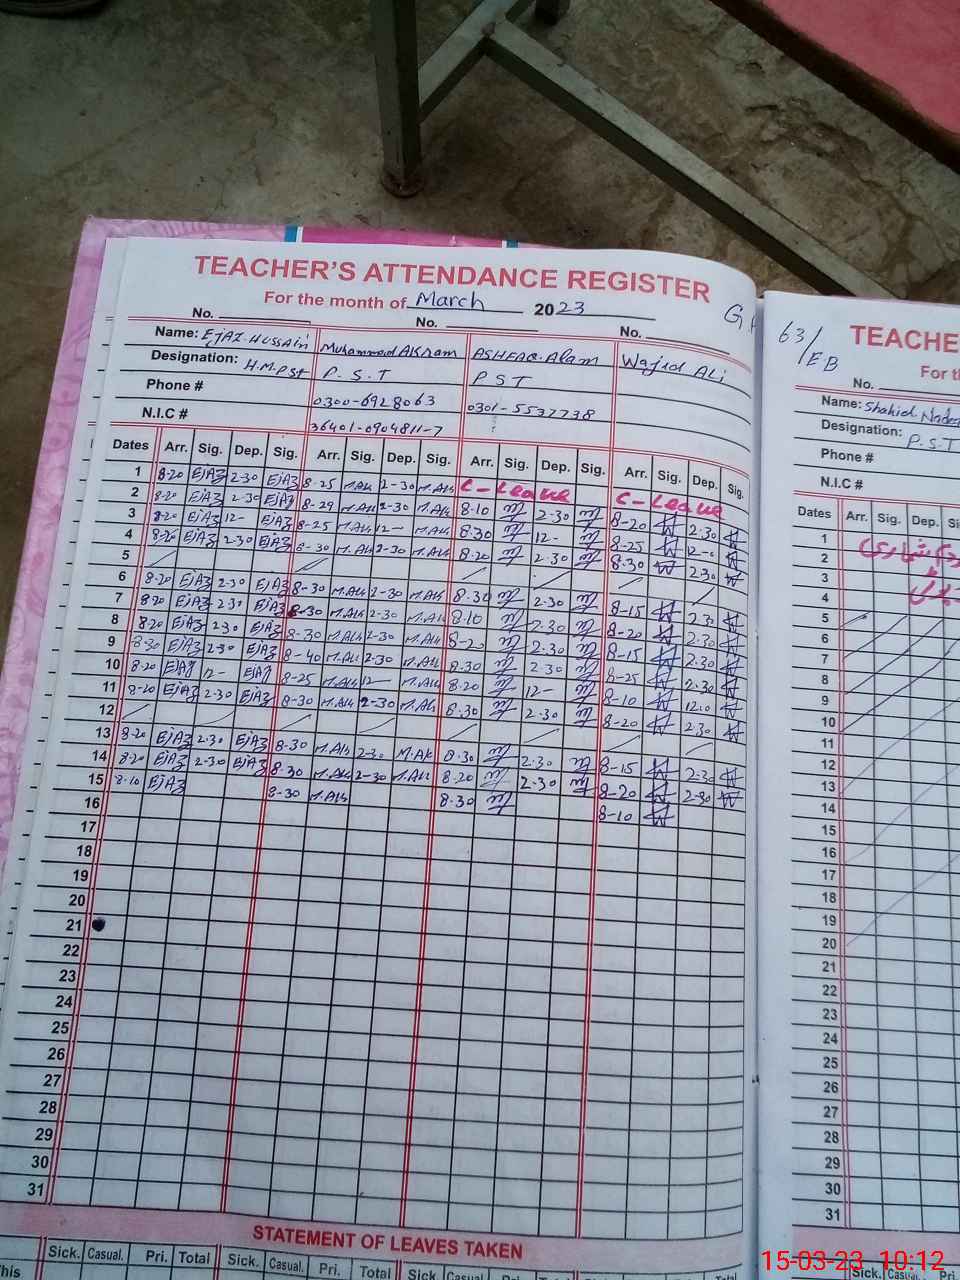 TEACHER'S ATTENDANCE REGISTER
For the month of March 2023
No. No. No.
Name: EJAZ. HUSSAIN Muhammad Akram ASHFAQ. Alam Wajid ALi
Designation: H.M.PST P.S.T PST
Phone # 0300-6928063 0301-5537738
N.I.C # 36401-0904811-7
Dates Arr. Sig. Dep. Sig. Arr. Sig. Dep. Sig. Arr. Sig. Dep. Sig. Arr. Sig. Dep. Sig.
1 8-20 EjAz 2-30 EjAz 8-25 M.Ak 2-30 M.Ak C-Leave C-Leave
2 8-20 EjAz 2-30 EjAz 8-29 M.Ak 2-30 M.Ak 8-10 2-30 8-20 2-30
3 8-20 EjAz 12- EjAz 8-25 M.Ak 12- M.Ak 8-30 12- 8-25 12-0
4 8-20 EjAz 2-30 EjAz 8-30 M.Ak 2-30 M.Ak 8-20 2-30 8-30 2-30
5
6 8-20 EjAz 2-30 EjAz 8-30 M.Ak 2-30 M.Ak 8-30 2-30 8-15 2-30
7 8-20 EjAz 2-30 EjAz 8-30 M.Ak 2-30 M.Ak 8-10 2-30 8-20 2-30
8 8-20 EjAz 2-30 EjAz 8-30 M.Ak 2-30 M.Ak 2-30 8-15 2-30
9 8-30 EjAz 2-30 EjAz 8-40 M.Ak 2-30 M.Ak 8-30 2-30 8-25 2-30
10 8-20 EjAz 12- EjAz 8-25 M.Ak 12- M.Ak 8-20 12- 8-10 12-0
11 8-20 EjAz 2-30 EjAz 8-30 M.Ak 2-30 M.Ak 8-30 2-30 8-20 2-30
12
13 8-20 EjAz 2-30 EjAz 8-30 M.Ak 2-30 M.Ak 8-30 2-30 8-15 2-30
14 8-20 EjAz 2-30 EjAz 8-30 M.Ak 2-30 M.Ak 8-20 2-30 8-20 2-30
15 8-10 EjAz 8-30 M.Ak 8-30 8-10
16
17
18
19
20
21
22
23
24
25
26
27
28
29
30
31
STATEMENT OF LEAVES TAKEN
Sick. Casual. Pri. Total Sick. Casual. Pri. Total Sick. Casual. Pri. Total
This
63/EB
TEACHE
For th
No.
Name: Shahid
Designation: P.S.T
Phone #
N.I.C #
Dates Arr. Sig. Dep.
1
2
3
4
5
6
7
8
9
10
11
12
13
14
15
16
17
18
19
20
21
22
23
24
25
26
27
28
29
30
31
Sick. Casual. Pri.
15-03-23 10:12